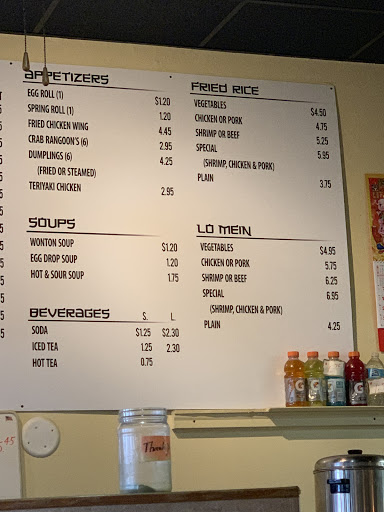 APPETIZERS
EGG ROLL (1) $1.20
SPRING ROLL (1) 1.20
FRIED CHICKEN WING 4.45
CRAB RANGOON'S (6) 2.95
DUMPLINGS (6) 4.25
(FRIED OR STEAMED)
TERIYAKI CHICKEN 2.95
SOUPS
WONTON SOUP $1.20
EGG DROP SOUP 1.20
HOT & SOUR SOUP 1.75
BEVERAGES S. L.
SODA $1.25 $2.30
ICED TEA 1.25 2.30
HOT TEA 0.75
FRIED RICE
VEGETABLES $4.50
CHICKEN OR PORK 4.75
SHRIMP OR BEEF 5.25
SPECIAL 5.95
(SHRIMP, CHICKEN & PORK)
PLAIN 3.75
LO MEIN
VEGETABLES $4.95
CHICKEN OR PORK 5.75
SHRIMP OR BEEF 6.25
SPECIAL 6.95
(SHRIMP, CHICKEN & PORK)
PLAIN 4.25
G G G G